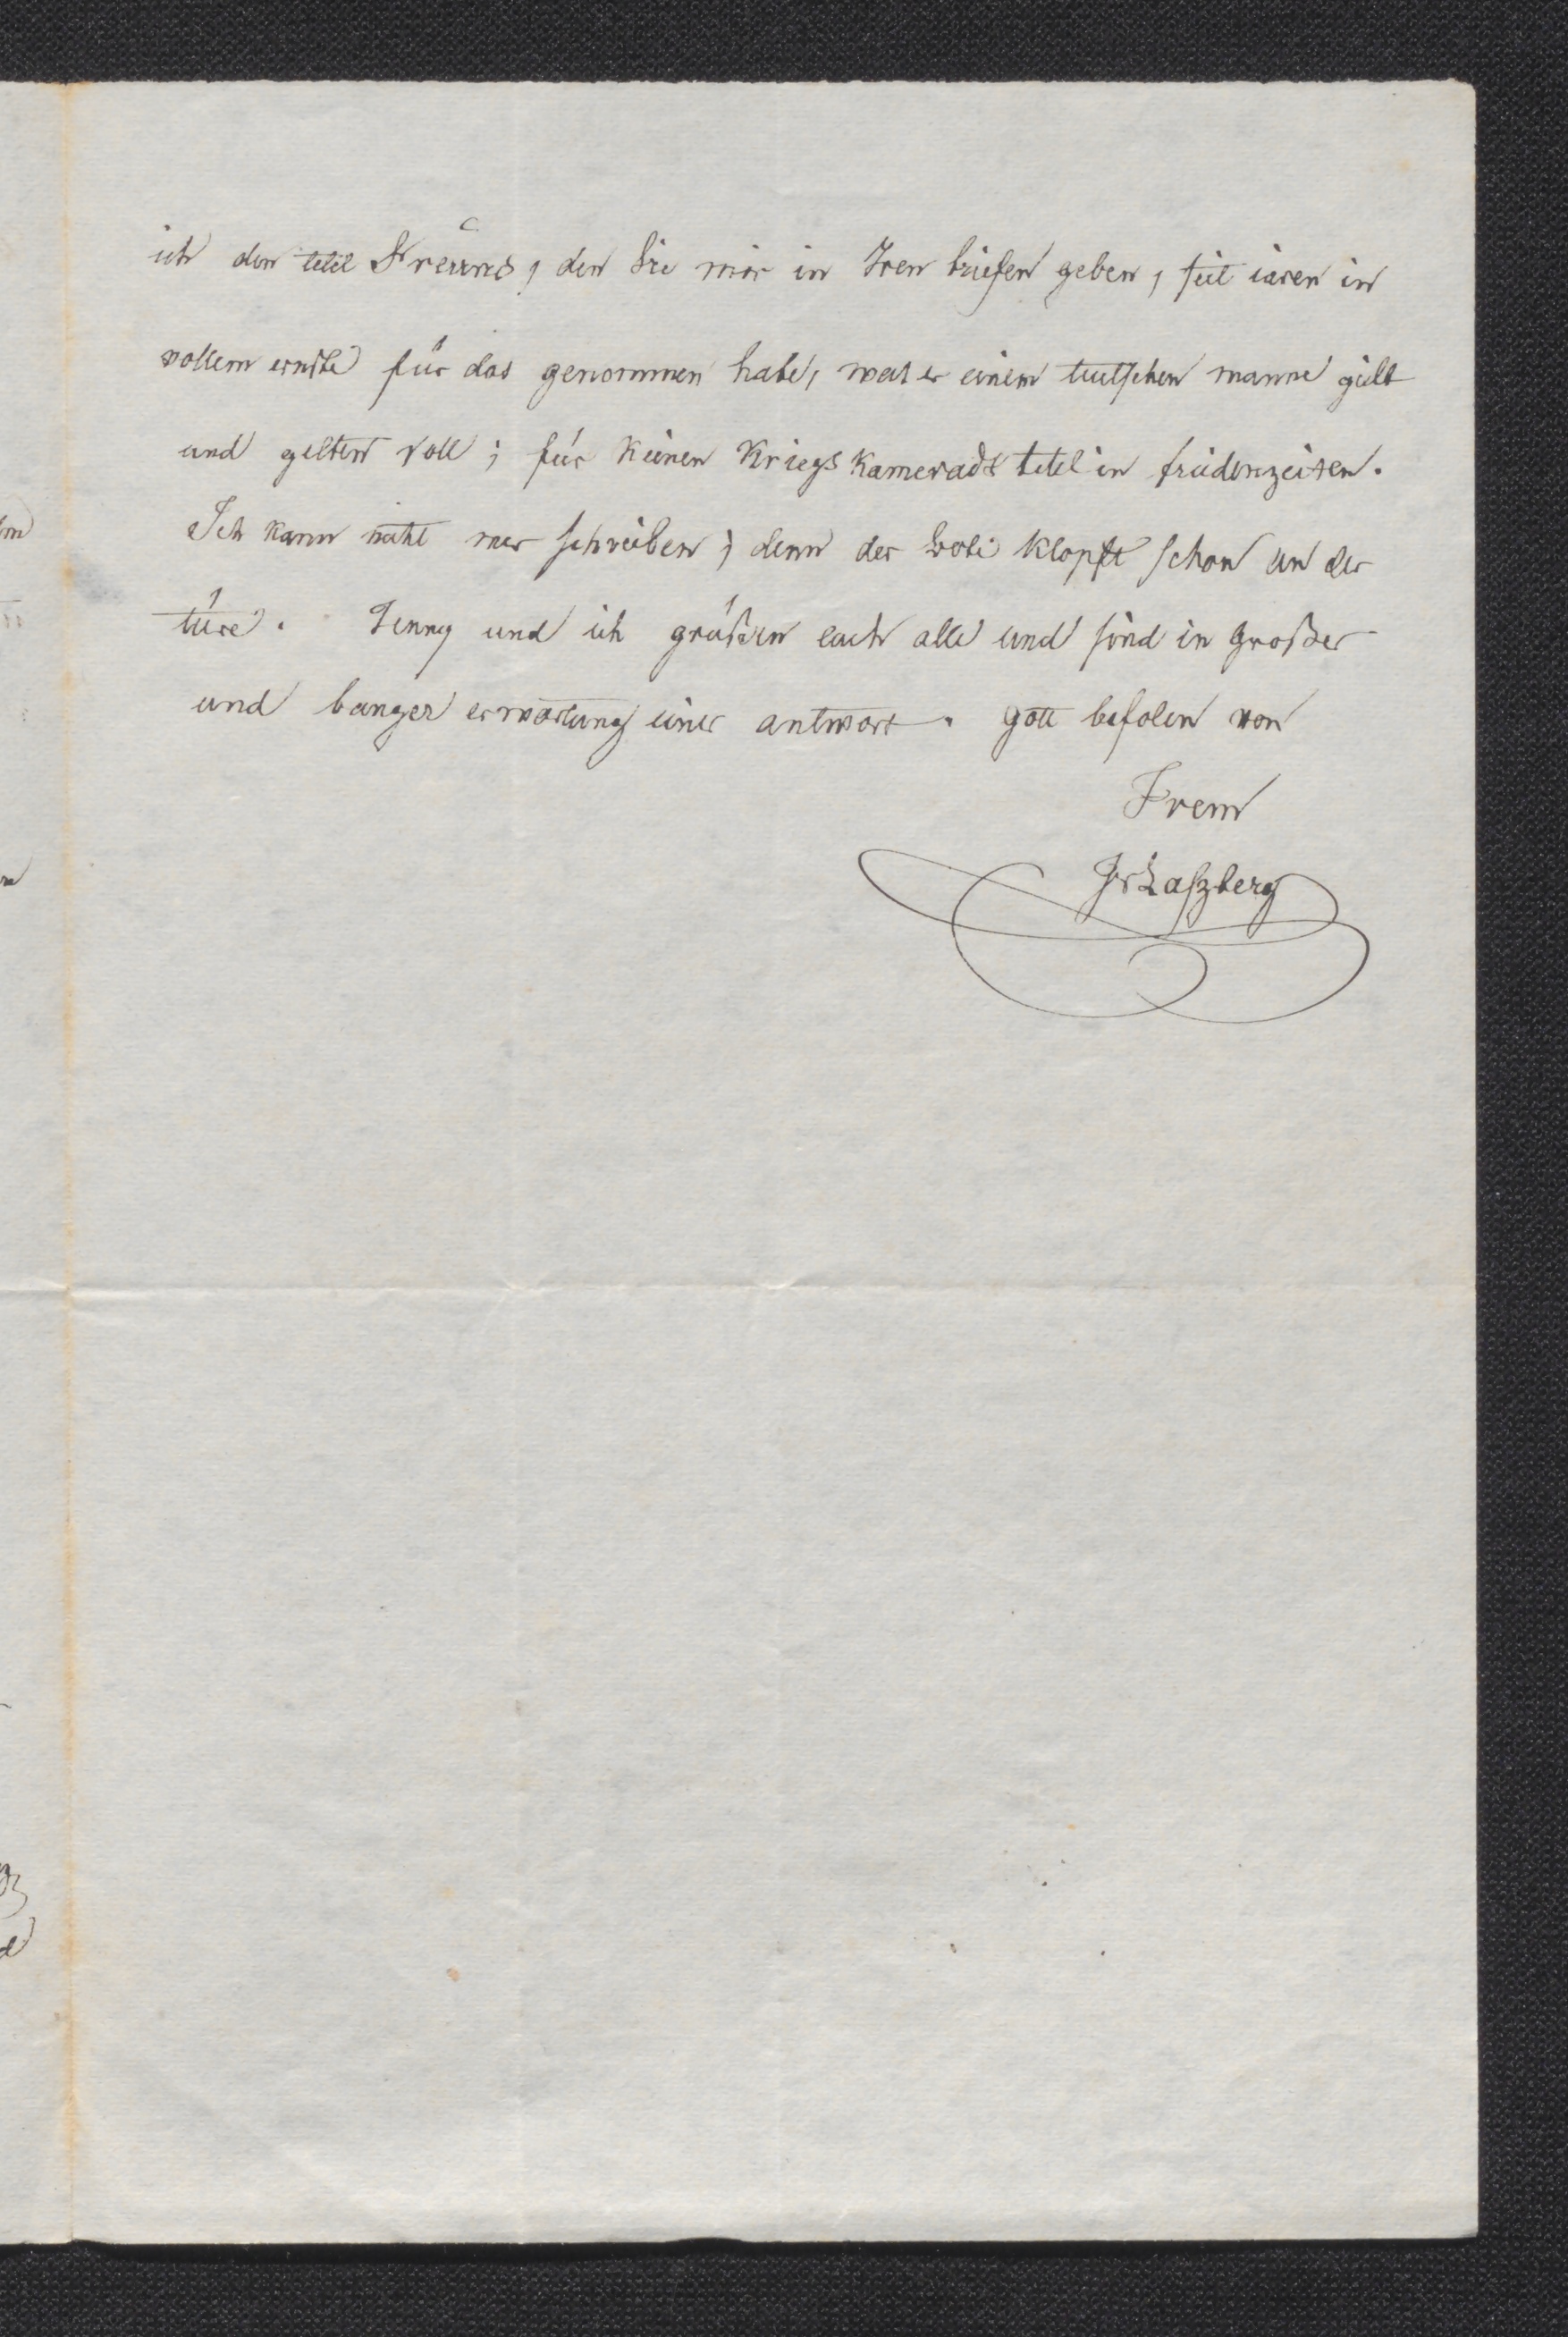 ich den titel Freünd, den Sie mir in Iren briefen geben, seit iaren in
vollem ernste für das genommen habe, was er einem teutschen manne gilt
und gelten soll; für keinen Kriegs Kamerads titel in fridenszeiten.
Ich kann nicht mer schreiben; denn der bote klopft schon an der
türe. Jenny und ich grüßen euch alle und sind in großer
und banger erwartung einer antwort. gott befolen von
Irem
JvLaszberg